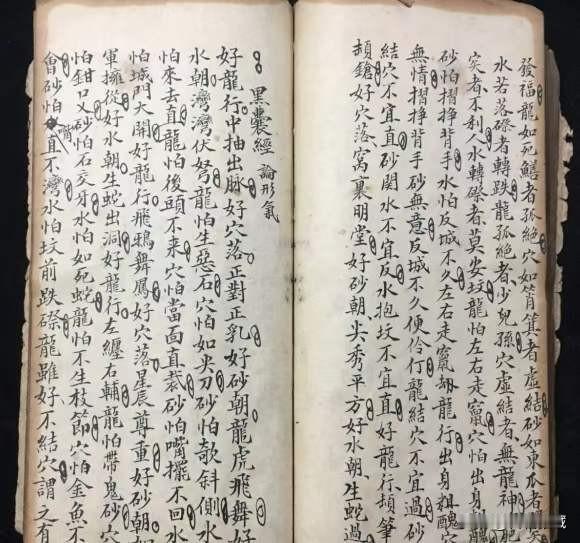 發福龍如死鱔者孤絕穴如筲箕者虛結砂如東瓜者
水若落磜者轉跌龍孤絕者少兒孫穴虛結者無龍神肥
者不利人水轉磜者莫安坟龍怕左右走竄穴怕出身醜
砂怕摺掙背手水怕反城不久左右走竄龍行出身粗醜穴
無情摺掙背手砂無意反城不久便伶仃龍結穴不宜過砂
結穴不宜直砂関水不宜反水抱坟不宜直好龍行頓筆
頓鎗好穴落窩裏明堂好砂朝尖秀平方好水朝生蛇過
黑囊經 論形氣
好龍行中抽出脉好穴落正對正乳好砂朝龍虎飛舞好
水朝灣灣伏弩龍怕生惡石穴怕如尖刀砂怕欹斜側水
怕來去直龍怕後頭不来穴怕當面直裁砂怕嘴擺不回水
怕城門大開好龍行飛鴉舞鳳好穴落星辰尊重好砂朝
軍擁從好水朝生蛇出洞好龍行左纏右輔龍怕帶鬼砂穴
怕鉗口又砂怕石交牙水怕如死蛇龍怕不生枝節穴怕金魚不
會砂怕嘴直不灣水怕坟前跌磜龍雖好不結穴謂之有